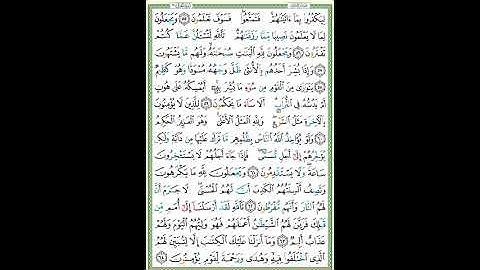 لِيَكْفُرُوا۟ بِمَآ ءَاتَيْنَـٰهُمْ ۚ فَتَمَتَّعُوا۟ ۖ فَسَوْفَ تَعْلَمُونَ ٥٥ وَيَجْعَلُونَ
لِمَا لَا يَعْلَمُونَ نَصِيبًا مِّمَّا رَزَقْنَـٰهُمْ ۗ تَٱللَّهِ لَتُسْـَٔلُنَّ عَمَّا كُنتُمْ
تَفْتَرُونَ ٥٦ وَيَجْعَلُونَ لِلَّهِ ٱلْبَنَـٰتِ سُبْحَـٰنَهُۥ ۙ وَلَهُم مَّا يَشْتَهُونَ
٥٧ وَإِذَا بُشِّرَ أَحَدُهُم بِٱلْأُنثَىٰ ظَلَّ وَجْهُهُۥ مُسْوَدًّا وَهُوَ كَظِيمٌ
٥٨ يَتَوَٰرَىٰ مِنَ ٱلْقَوْمِ مِن سُوٓءِ مَا بُشِّرَ بِهِۦٓ ۚ أَيُمْسِكُهُۥ عَلَىٰ هُونٍ
أَمْ يَدُسُّهُۥ فِى ٱلتُّرَابِ ۗ أَلَا سَآءَ مَا يَحْكُمُونَ ٥٩ لِلَّذِينَ لَا يُؤْمِنُونَ
بِٱلْـَٔاخِرَةِ مَثَلُ ٱلسَّوْءِ ۖ وَلِلَّهِ ٱلْمَثَلُ ٱلْأَعْلَىٰ ۚ وَهُوَ ٱلْعَزِيزُ ٱلْحَكِيمُ
٦٠ وَلَوْ يُؤَاخِذُ ٱللَّهُ ٱلنَّاسَ بِظُلْمِهِم مَّا تَرَكَ عَلَيْهَا مِن دَآبَّةٍ وَلَـٰكِن
يُؤَخِّرُهُمْ إِلَىٰٓ أَجَلٍ مُّسَمًّى ۖ فَإِذَا جَآءَ أَجَلُهُمْ لَا يَسْتَـْٔخِرُونَ
سَاعَةً ۖ وَلَا يَسْتَقْدِمُونَ ٦١ وَيَجْعَلُونَ لِلَّهِ مَا يَكْرَهُونَ
وَتَصِفُ أَلْسِنَتُهُمُ ٱلْكَذِبَ أَنَّ لَهُمُ ٱلْحُسْنَىٰ ۖ لَا جَرَمَ أَنَّ
لَهُمُ ٱلنَّارَ وَأَنَّهُم مُّفْرَطُونَ ٦٢ تَٱللَّهِ لَقَدْ أَرْسَلْنَآ إِلَىٰٓ أُمَمٍ مِّن
قَبْلِكَ فَزَيَّنَ لَهُمُ ٱلشَّيْطَـٰنُ أَعْمَـٰلَهُمْ فَهُوَ وَلِيُّهُمُ ٱلْيَوْمَ وَلَهُمْ
عَذَابٌ أَلِيمٌ ٦٣ وَمَآ أَنزَلْنَا عَلَيْكَ ٱلْكِتَـٰبَ إِلَّا لِتُبَيِّنَ لَهُمُ
ٱلَّذِى ٱخْتَلَفُوا۟ فِيهِ ۙ وَهُدًى وَرَحْمَةً لِّقَوْمٍ يُؤْمِنُونَ ٦٤